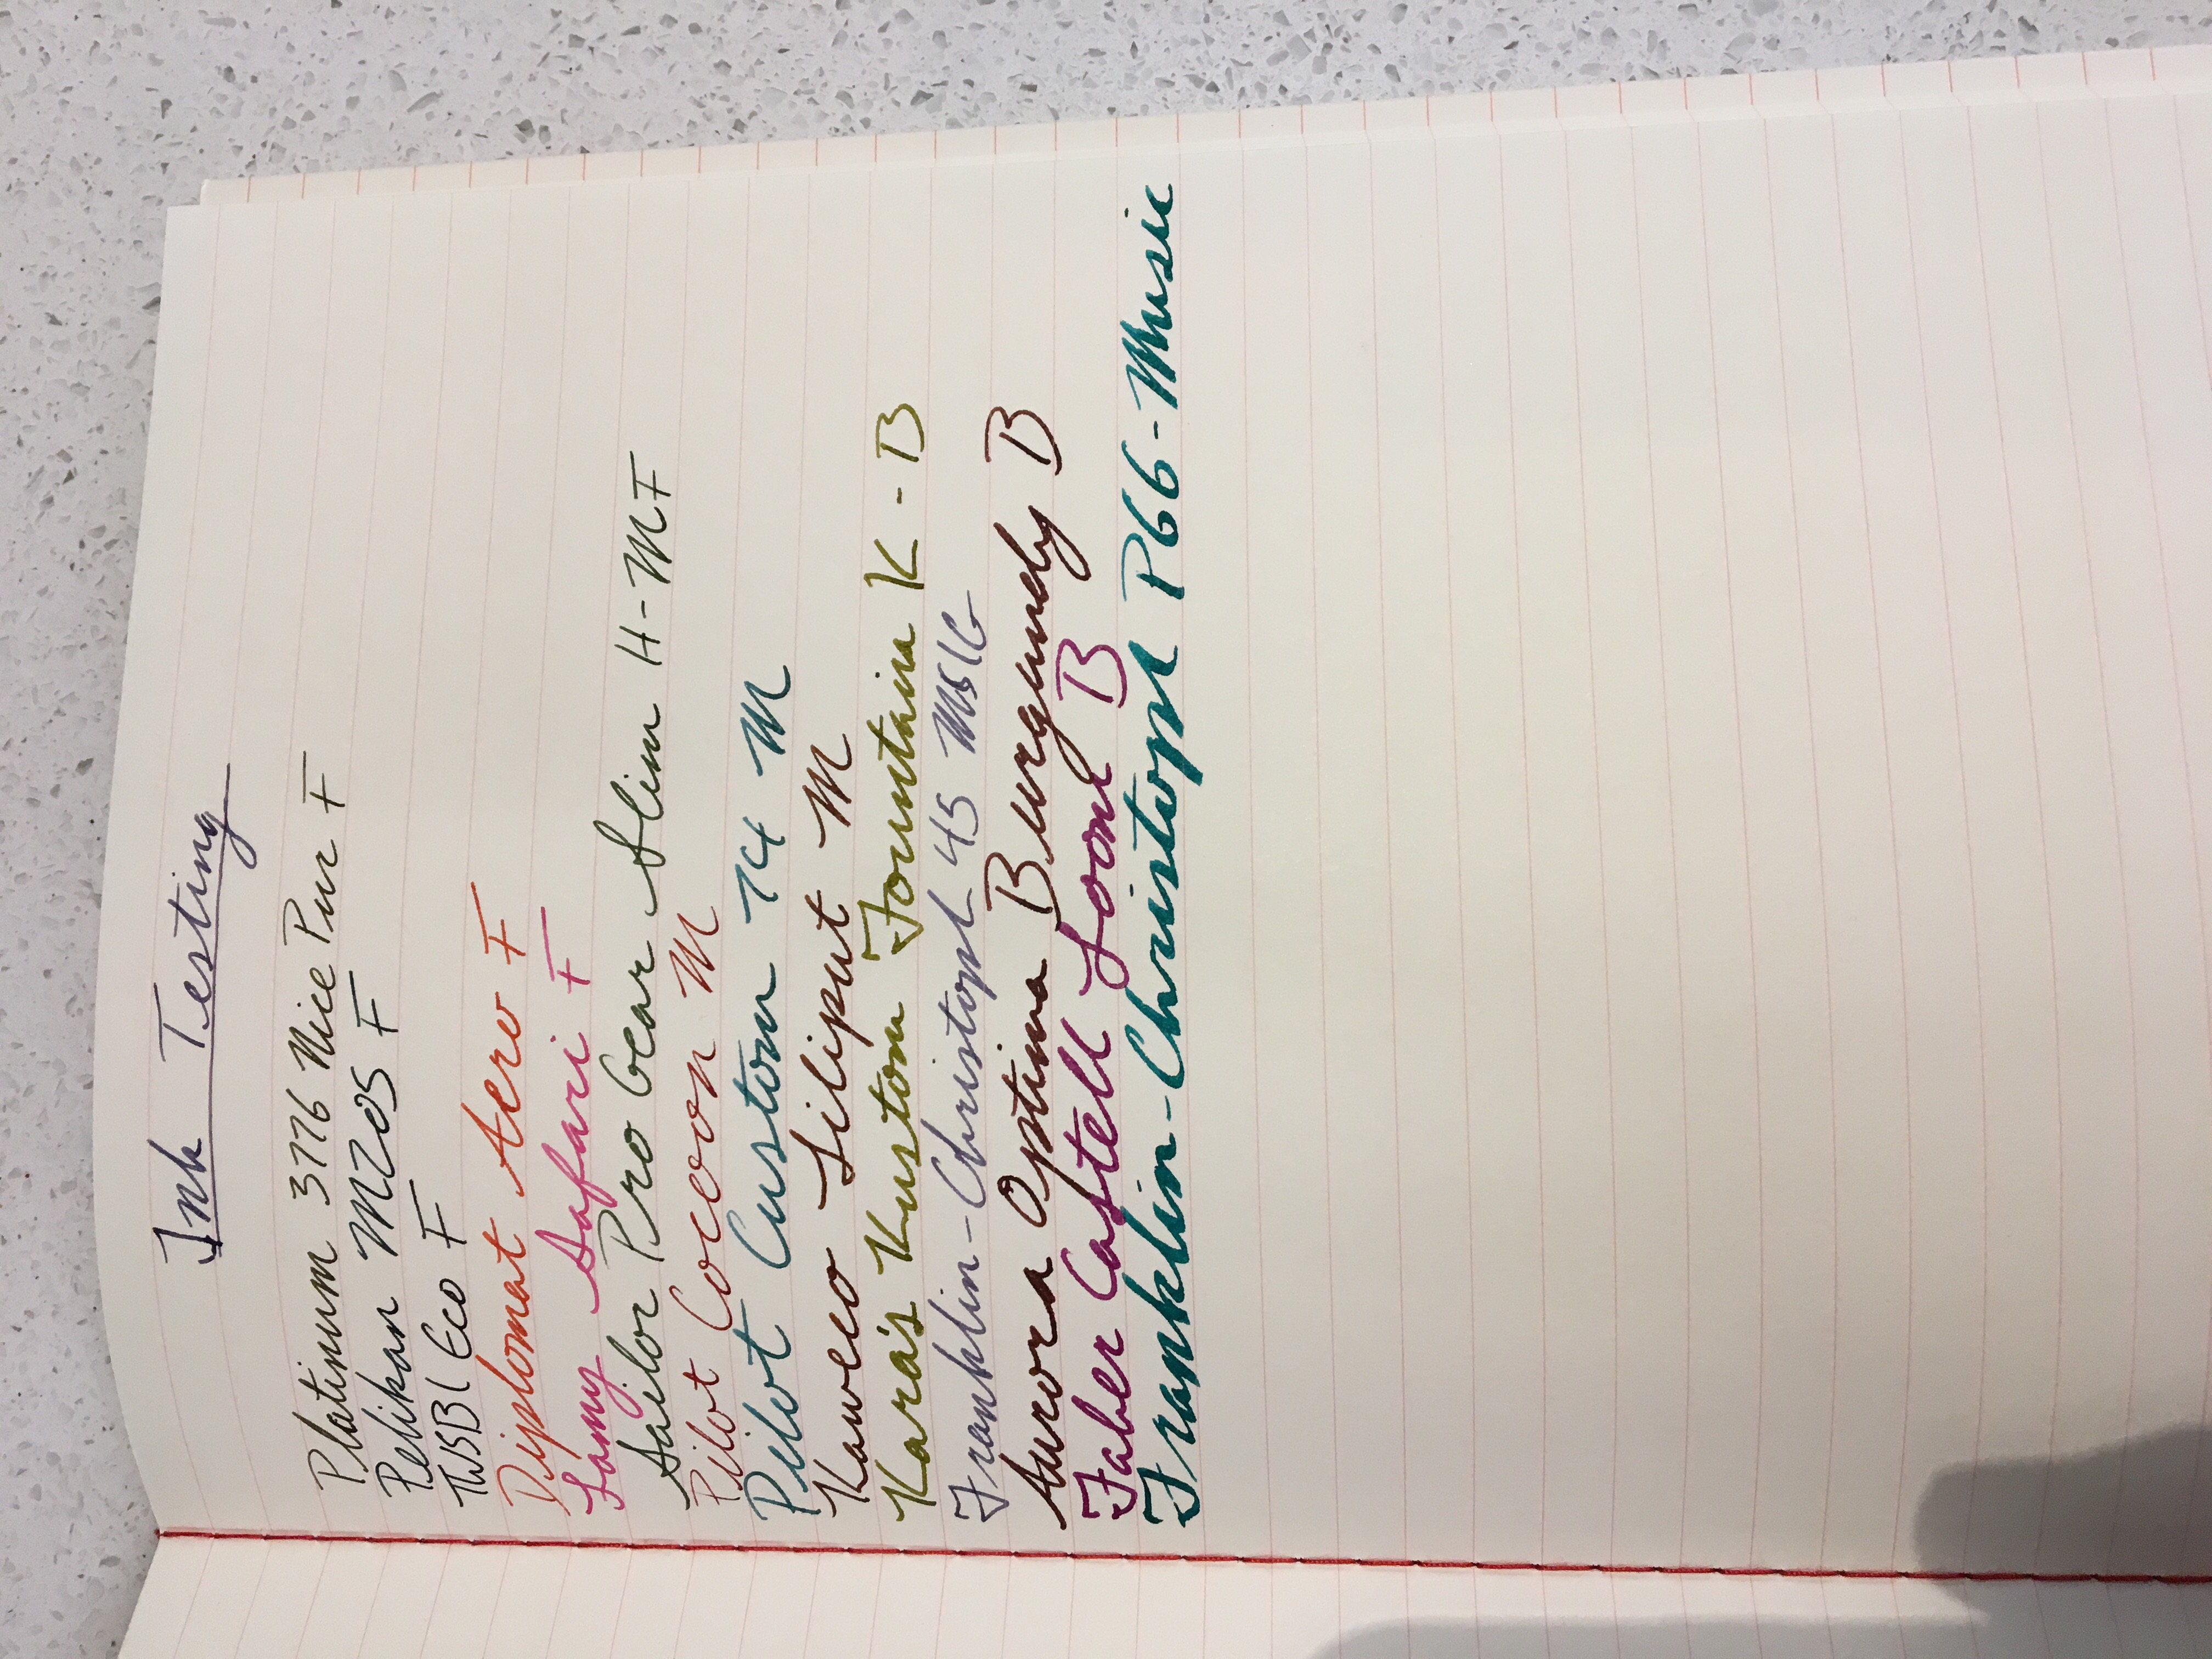 Ink Testing
Platinum 3776 Nice Pur F
Pelikan M205 F
TWSBI Eco F
Diplomat Aero F
Lamy Safari F
Sailor Pro Gear Slim H-MF
Pilot Cocoon M
Pilot Custom 74 M
Kaweco Liliput M
Kara's Kustom Fountain K - B
Franklin-Christoph 45 MSIG
Aurora Optima Burgundy B
Faber Castell Loom B
Franklin-Christoph P66-Music